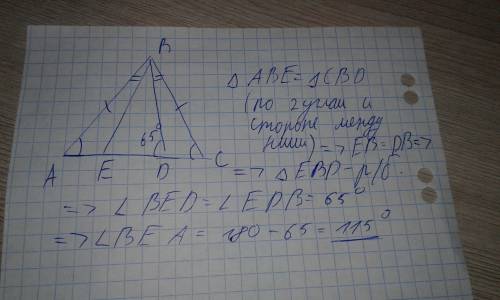 B
65°
A
E
D
C
△ ABE = △CBD
(по 2 углам и
стороне между
ними) => EB = DB =>
=> △ EBD - р/б.
=> ∠ BED = ∠ EDB = 65°
=> ∠BEA = 180 - 65 = 115°